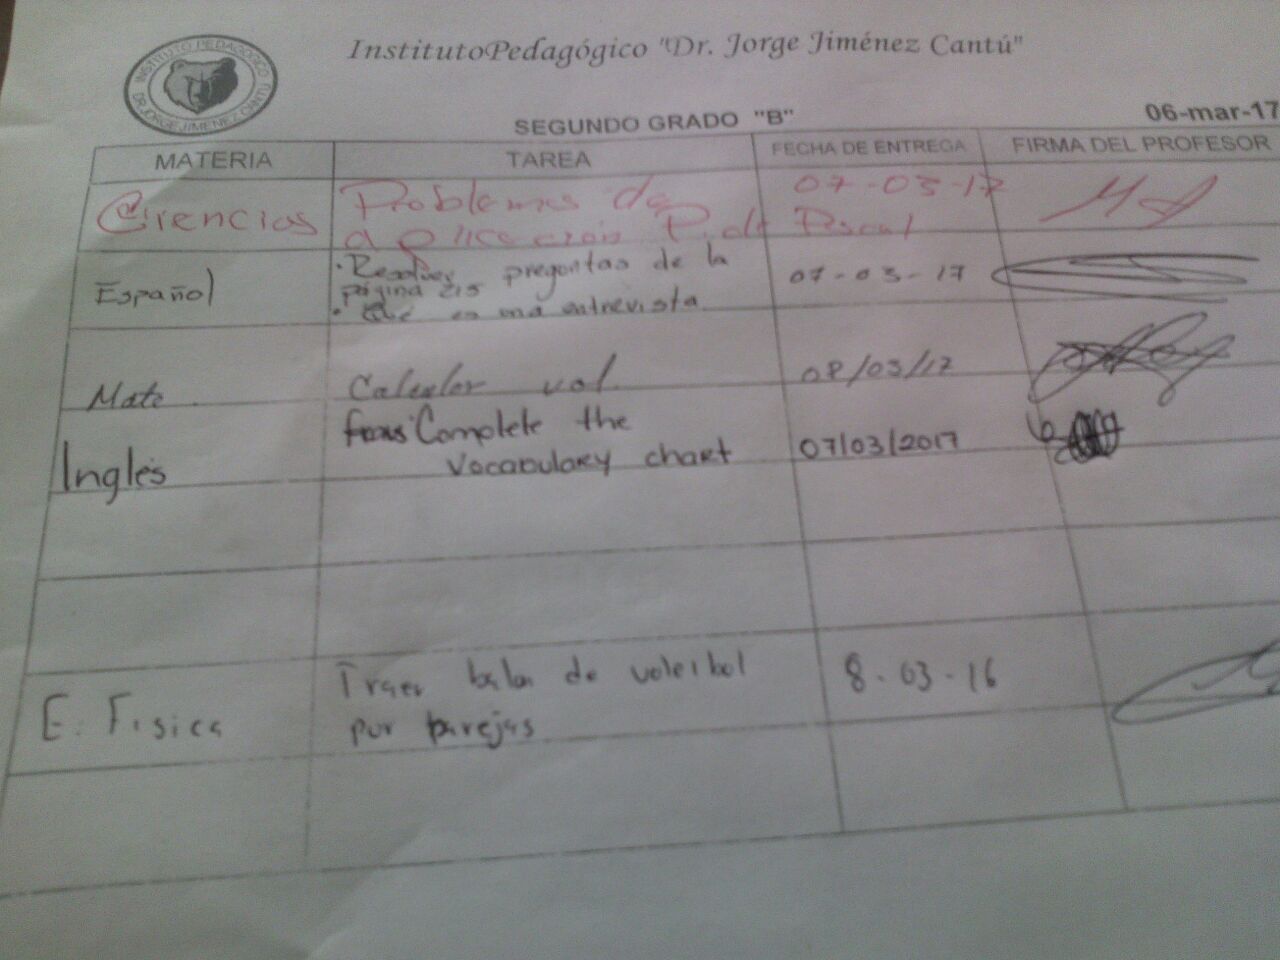 INSTITUTO PEDAGOGICO
DR. JORGE JIMENEZ CANTU
InstitutoPedagógico "Dr. Jorge Jiménez Cantú"
SEGUNDO GRADO "B"
06-mar-17
MATERIA TAREA FECHA DE ENTREGA FIRMA DEL PROFESOR
Ciencias Problemas de 07-03-17
aplicacion P. de Pascal
Español · Resolver preguntas de la 07-03-17
página 215
· Que es una entrevista
Mate Calcular vol 08/03/17
Complete the
Ingles vocabulary chart 07/03/2017
E. Fisica Traer balon de voleibol 8-03-16
por parejas